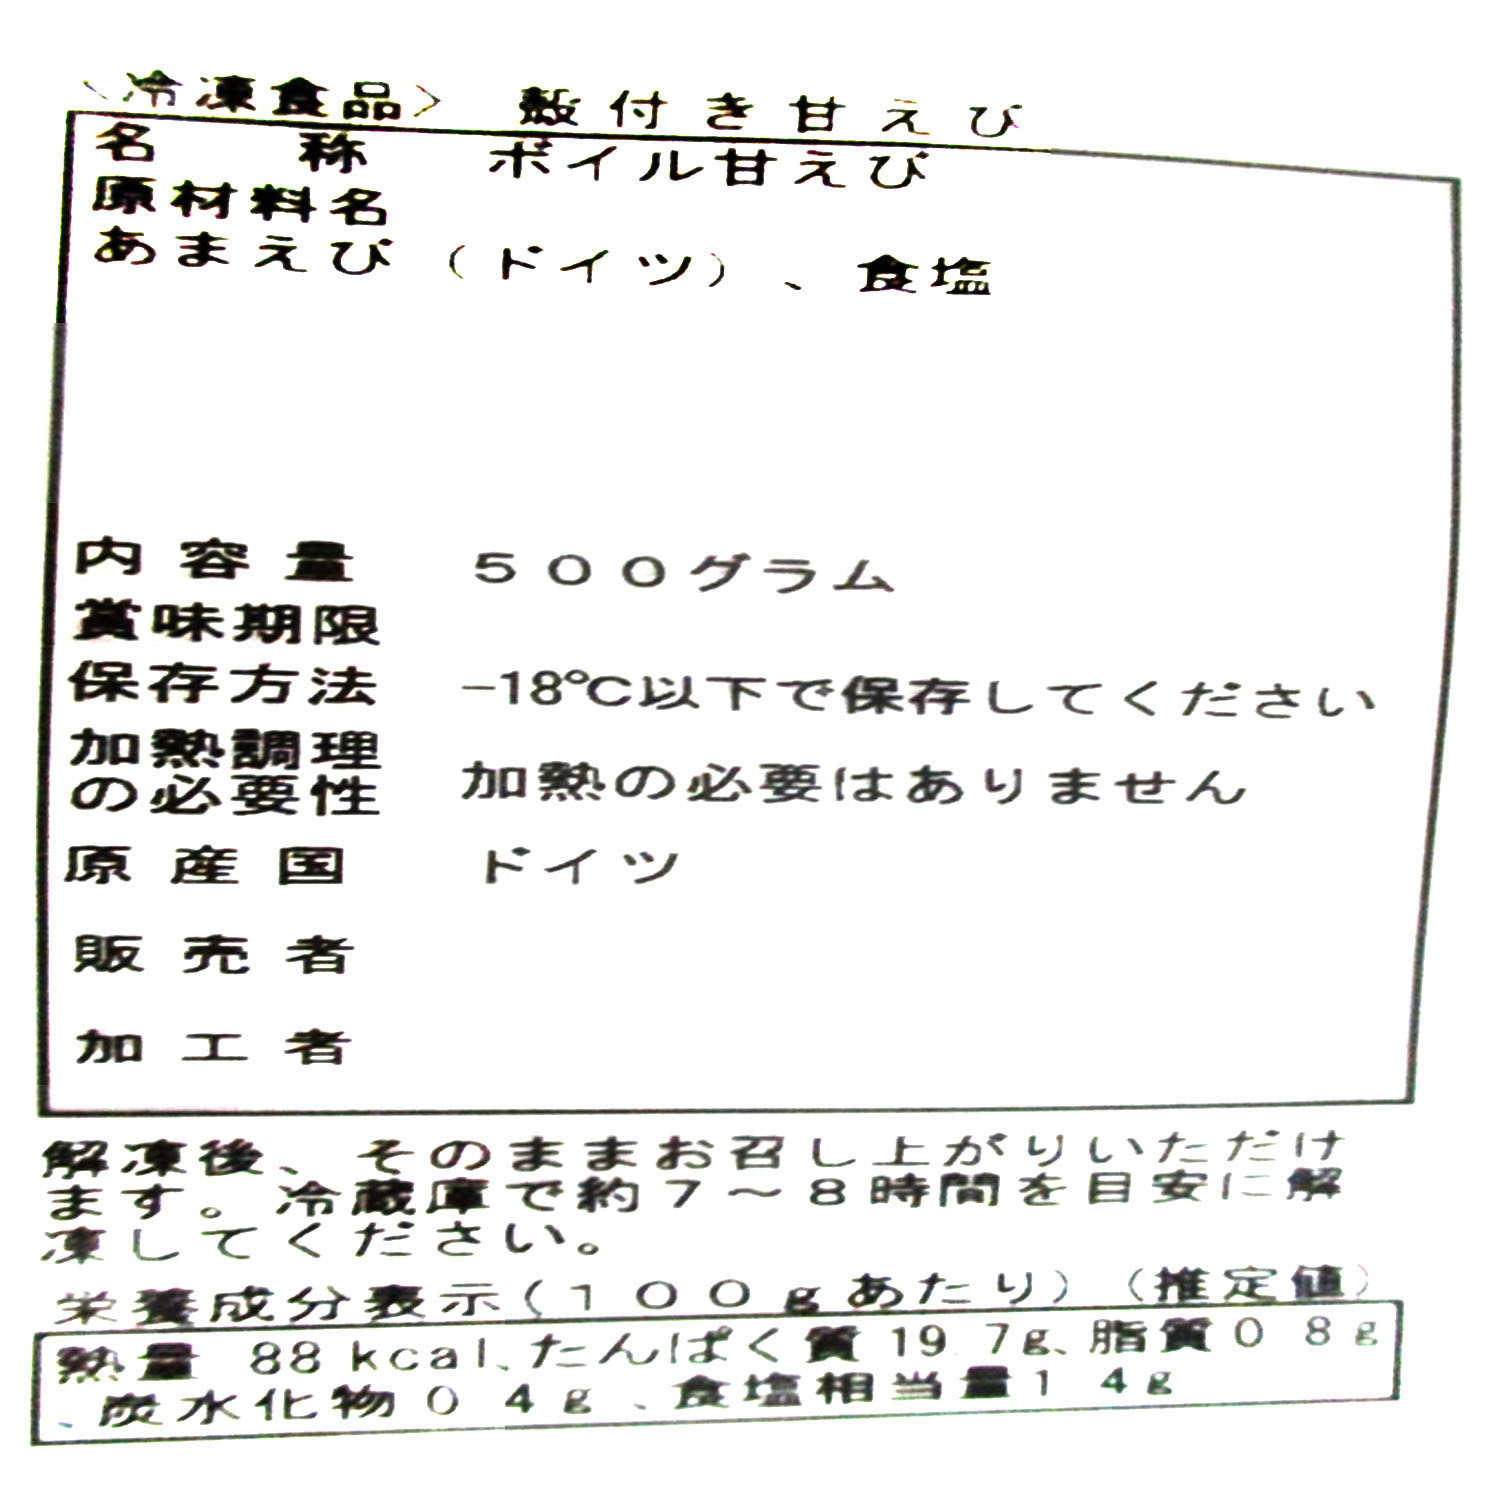 〈冷凍食品〉 殻付き甘えび
名 称 ボイル甘えび
原材料名
あまえび（ドイツ）、食塩
内容量 ５００グラム
賞味期限
保存方法 -18℃以下で保存してください
加熱調理
の必要性 加熱の必要はありません
原産国 ドイツ
販売者
加工者
解凍後、そのままお召し上がりいただけ
ます。冷蔵庫で約７～８時間を目安に解
凍してください。
栄養成分表示(１００ｇあたり)（推定値）
熱量 88 kcal、たんぱく質19.7g、脂質0.8g
、炭水化物0.4g、食塩相当量1.4g